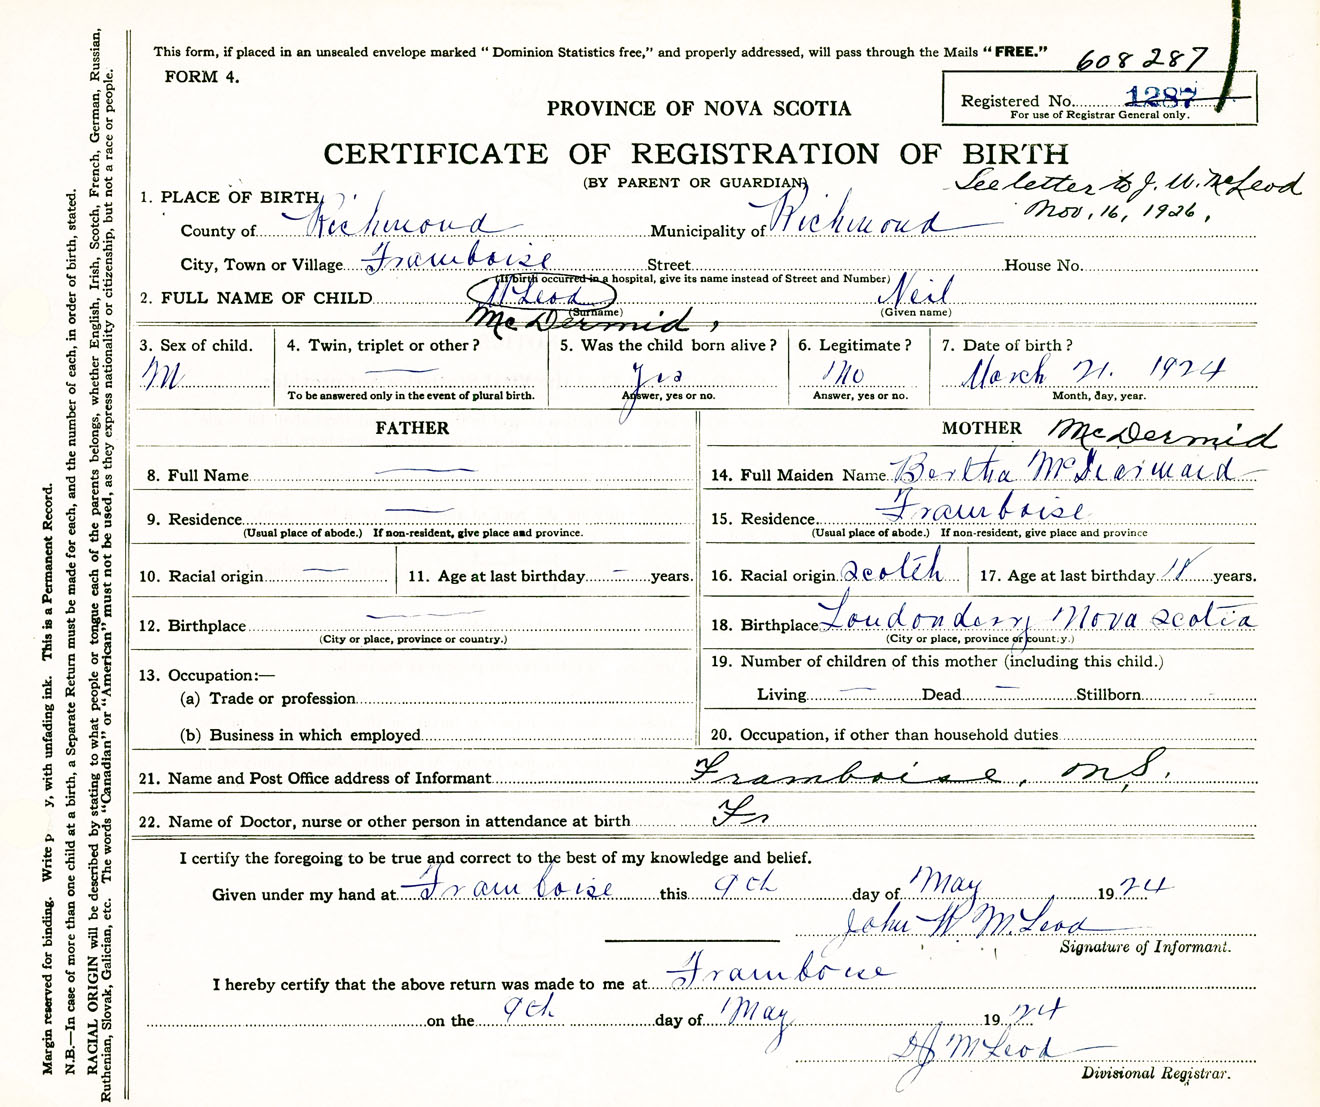 This form, if placed in an unsealed envelope marked "Dominion Statistics free," and properly addressed, will pass through the Mails "FREE."
608287
FORM 4.
Registered No. 1287
For use of Registrar General only.
PROVINCE OF NOVA SCOTIA
CERTIFICATE OF REGISTRATION OF BIRTH
(BY PARENT OR GUARDIAN)
See letter to J. W. McLeod
Nov, 16, 1926.
1. PLACE OF BIRTH,
County of Richmond Municipality of Richmond
City, Town or Village Framboise Street House No.
(If birth occurred in a hospital, give its name instead of Street and Number)
2. FULL NAME OF CHILD McLeod Neil
(Surname) (Given name)
McDermid,
3. Sex of child. 4. Twin, triplet or other? 5. Was the child born alive? 6. Legitimate? 7. Date of birth?
M — Yes No March 21. 1924
To be answered only in the event of plural birth. Answer, yes or no. Answer, yes or no. Month, day, year.
FATHER MOTHER McDermid
8. Full Name — 14. Full Maiden Name Bertha McDiarmaid
9. Residence — 15. Residence. Framboise
(Usual place of abode.) If non-resident, give place and province. (Usual place of abode.) If non-resident, give place and province
10. Racial origin — 11. Age at last birthday - years. 16. Racial origin Scotch 17. Age at last birthday 18 years.
12. Birthplace — 18. Birthplace Londonderry Nova Scotia
(City or place, province or country.) (City or place, province or country.)
13. Occupation:— 19. Number of children of this mother (including this child.)
(a) Trade or profession Living — Dead — Stillborn -
(b) Business in which employed 20. Occupation, if other than household duties
21. Name and Post Office address of Informant Framboise, N.S.
22. Name of Doctor, nurse or other person in attendance at birth Fr
I certify the foregoing to be true and correct to the best of my knowledge and belief.
Given under my hand at Framboise this 9th day of May 1924
John W McLeod
Signature of Informant.
I hereby certify that the above return was made to me at Framboise
on the 9th day of May 1924
DJ McLeod
Divisional Registrar.
Margin reserved for binding. Write p y, with unfading ink. This is a Permanent Record.
N.B.—In case of more than one child at a birth, a Separate Return must be made for each, and the number of each, in order of birth, stated.
RACIAL ORIGIN will be described by stating to what people or tongue each of the parents belongs, whether English, Irish, Scotch, French, German, Russian,
Ruthenian, Slovak, Galician, etc. The words "Canadian" or "American" must not be used, as they express nationality or citizenship, but not a race or people.